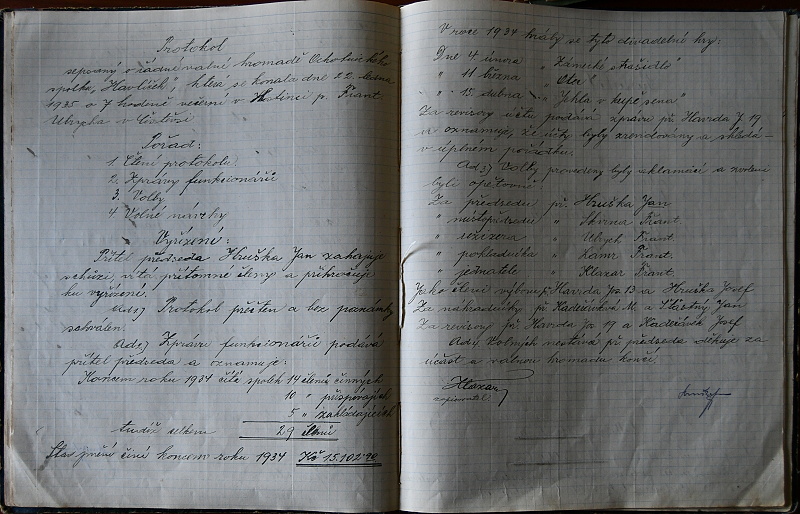 Protokol
sepsaný o řádné valné hromadě Ochotnického
spolku „Havlíček", která se konala dne 22. ledna
1935 o 7 hodině večerní v hostinci p. Frant
Ulrycha v
Pořad:
1 Čtení protokolu.
2. Zprávy funkcionářů
3. Volby
4 Volné návrhy
Vyřízené:
Přítel předseda Hruška Jan zahajuje
schůzi, vítá přítomné členy a přikročuje
ku vyřízení.
ad 1) Protokol přečten a bez poznámky
schválen.
Ad 2) Zprávu funkcionářů podává
přítel předseda a oznamuje:
Koncem roku 1934 čítá spolek 14 členů činných
10 „ přispívajících
5 „ zakládajících
tudíž celkem 29 členů
Stav jmění činí koncem roku 1934 Kč 15.102.90
V roce 1934 hrály se tyto divadelní hry:
Dne 4. února „Zámecké strašidlo"
„ 11 března
„ 15. dubna „Jehla v kupě sena"
Za revisory účtů podává zprávu př. Havrda J. 19
a oznamuje, že účty byly zrevidovány a shledá-
v úplném pořádku.
Ad 3) Volby provedeny byly aklamací a zvoleni
byli opětovně
Za předsedu př. Hruška Jan
„ místopředsedu „ Skvrna Frant.
„ režiséra „ Ulrych Frant.
„ pokladníka „ Frant.
„ jednatele „ Klazar Frant.
Jako členi výboru př. Havrda Jos. 13 a Hruška Josef
Za náhradníky př. Kadeřávková M. a Šťastný Jan
Za revisory př. Havrda Jos. 19 a Kadeřávek Josef
Ad 4) Volných nestává př. předseda děkuje za
účast a valnou hromadu končí.
Klazar
zapisovatel